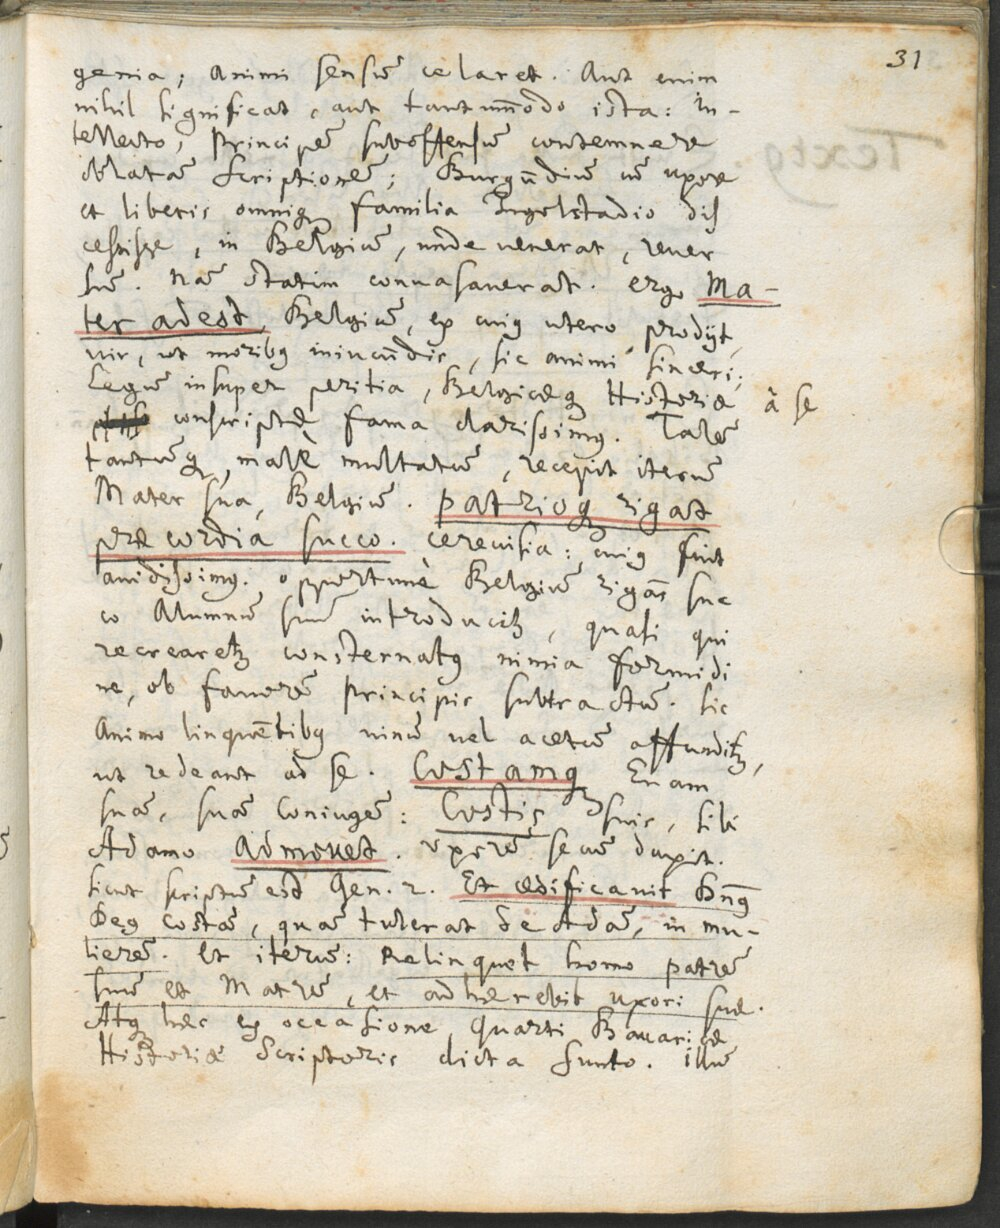 31
genia; animi sensū celaret. Aut enim
nihil significat, aut tantum̄odo ista: In-
tellecto, Principē suboffensū contemnere
oblatā Scriptionē; Burgūdicū cū uxore
et liberis omniq̨ familia Ingolstadio dis
cessisse, in Belgiū, unde venerat, rever
sū. Nā statim convasaverat. ergo Ma-
ter adest, Belgiū, ex cuiꝰ utero prodijt,
vir, ut moribꝰ iniucūdis, sic animi sinceri;
Legū insuper peritia, Belgicæq̨ Historiæ à se
conscriptæ fama clarissimꝰ. Talē
tantūq̨, malè multatū, recepit iterū
Mater sua, Belgiū. patrioq̨ rigat
præcordia succo. cerevisia: cuiꝰ fuit
avidissimꝰ. opportunè Belgiū rigās suc
co Alumnū suū introducit̃, quasi qui
recrearet̃ consternatꝰ nimia formidi
ne, ob favorē principis subtractū. sic
Animo linquētibꝰ vinū vel acetū affundit̃,
ut redeant ad se. Costamq̨ Evam
suā, suā Coniugē: Costis suis, sibi
Adamo admovet. Uxorē secū duxit.
sicut scriptū est Gen. 2. Et ædificavit Dn̄ꝰ
Deꝰ costā, quā tulerat de Adā, in mu-
lierē. Et iterū: Relinquet homo patrē
suū et Matrē, et adhærebit uxori suæ.
Atq̨ hæc ex occasione Quarti Bavaricæ
Historiæ Scriptoris dicta sunto. illū